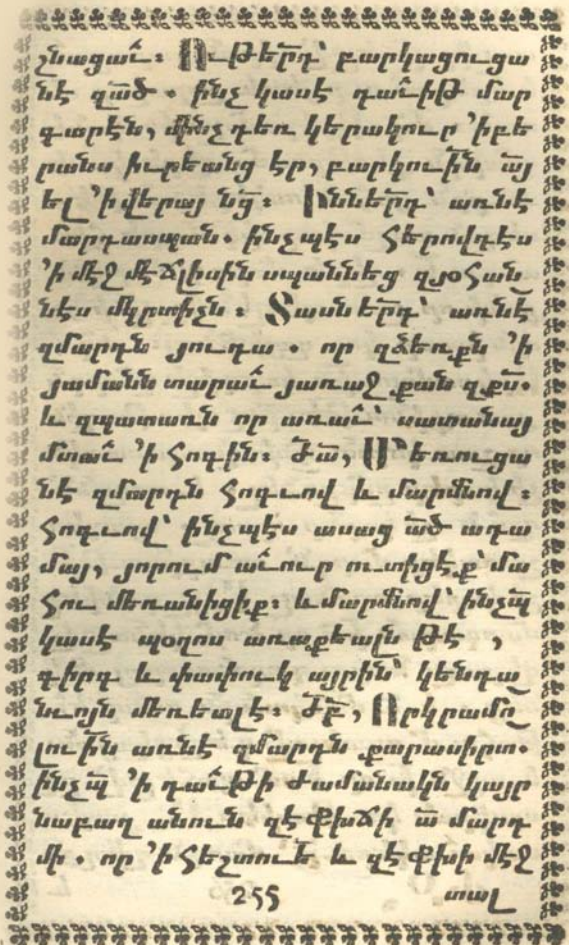 շնացաւ̃։ Ութերդ՝ բարկացուցա
նէ զած̃. ինչ կասէ դաւ̃իթ մար
գարէն, մինչդեռ կերակուր ՚ի բե
րանս իւրեանց էր, բարկու̃թին այ
ել ՚ի վերայ նց̃։ Իններդ՝ առնէ
մարդասպան. ինչպէս հերովդէս
՚ի մէջ մէճլիսին սպաննեց զյօհան
նէս մկրտիչն։ Տասներդ՝ առնէ
զմարդն յուդա. որ զձեռքն ՚ի
յամանն տարաւ̃ յառաջ քան զքս̃.
և զպատառն որ առաւ̃՝ սատանայ
մտաւ̃ ՚ի հոգին։ Ժա, Մեռուցա
նէ զմարդն հոգւով և մարմնով։
հոգւով՝ ինչպէս ասաց ած̃ ադա
մայ, յորում աւ̃ուր ուտիցէք՝ մա
հու մեռանիցիք։ և մարմնով՝ ինչպ̃
կասէ պօղոս առաքեալն թէ,
գիրգ և փափուկ այրին՝ կենդա
նւոյն մեռեալ է։ Ժբ, Որկրամո̃
լու̃ին առնէ զմարդն քարասիրտ.
ինչպ̃ ՚ի դաւ̃թի ժամանակն կայր
նաբաղ անուն զէֆխճի ա̃ մարդ
մի. որ ՚ի հեշտու̃ե և զէֆխի մէջ
255 տալ